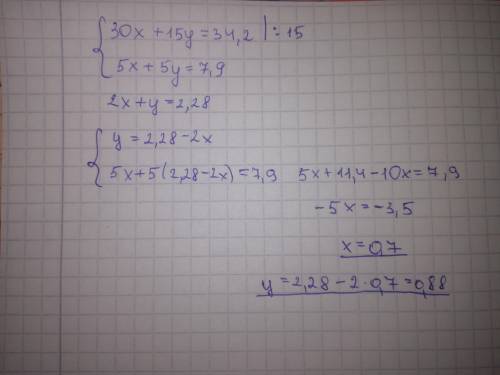 30x + 15y = 34,2 | : 15
5x + 5y = 7,9
2x + y = 2,28
y = 2,28 - 2x
5x + 5(2,28 - 2x) = 7,9 5x + 11,4 - 10x = 7,9
-5x = -3,5
x = 0,7
y = 2,28 - 2 · 0,7 = 0,88